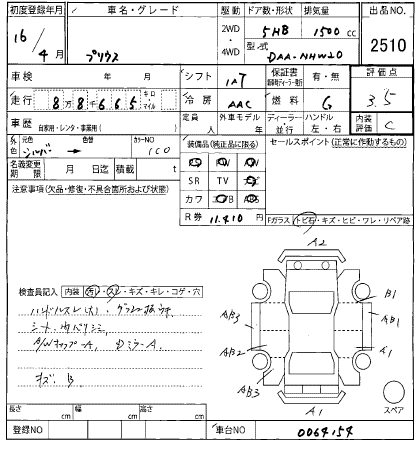 初度登録年月 車名・グレード 駆動 ドア数・形状 排気量 出品NO.
16/4月 プリウス 2WD・4WD 5HB 1500cc 2510
型式 DAA-NHW20
車検 年 月 シフト IAT 保証書 有・無 評価点
走行 8万8千665 キロ マイル 冷房 AAC 燃料 G 3.5
車歴 自家用・レンタ・事業用( ) 定員 人 外車モデル 年 ディーラー・並行 ハンドル 左・右 内装評価 C
外色 元色 シルバー 色替 カラーNO 1C0
装備品(純正品に限る) セールスポイント(正常に作動するもの)
名義変更期限 月 日迄 積載 t
SR TV
注意事項(欠品・修復・不具合箇所および状態)
カワ ABS
R券 11.410円
Fガラス トビ石・キズ・ヒビ・ワレ・リペア跡
A2
検査員記入 内装 汚レ・スレ・キズ・キレ・コゲ・穴
B1
ハンドルスレ(大)
AB3 AB1
シート、内バリシミ
AB2 A1
A/Wキャップ-A、DミラーA
AB3
キズ、B
A1 スペア
長さ cm 幅 cm 高さ cm
登録NO 車台NO 0064154